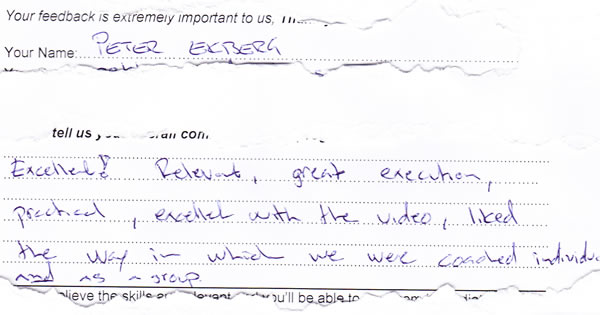 Your feedback is extremely important to us,
Your Name: PETER EKBERG
tell us
Excellent! Relevant, great execution,
practical, excellet with the video, liked
the way in which we were coached individu
and as a group.
lieve the skills you'll be able to